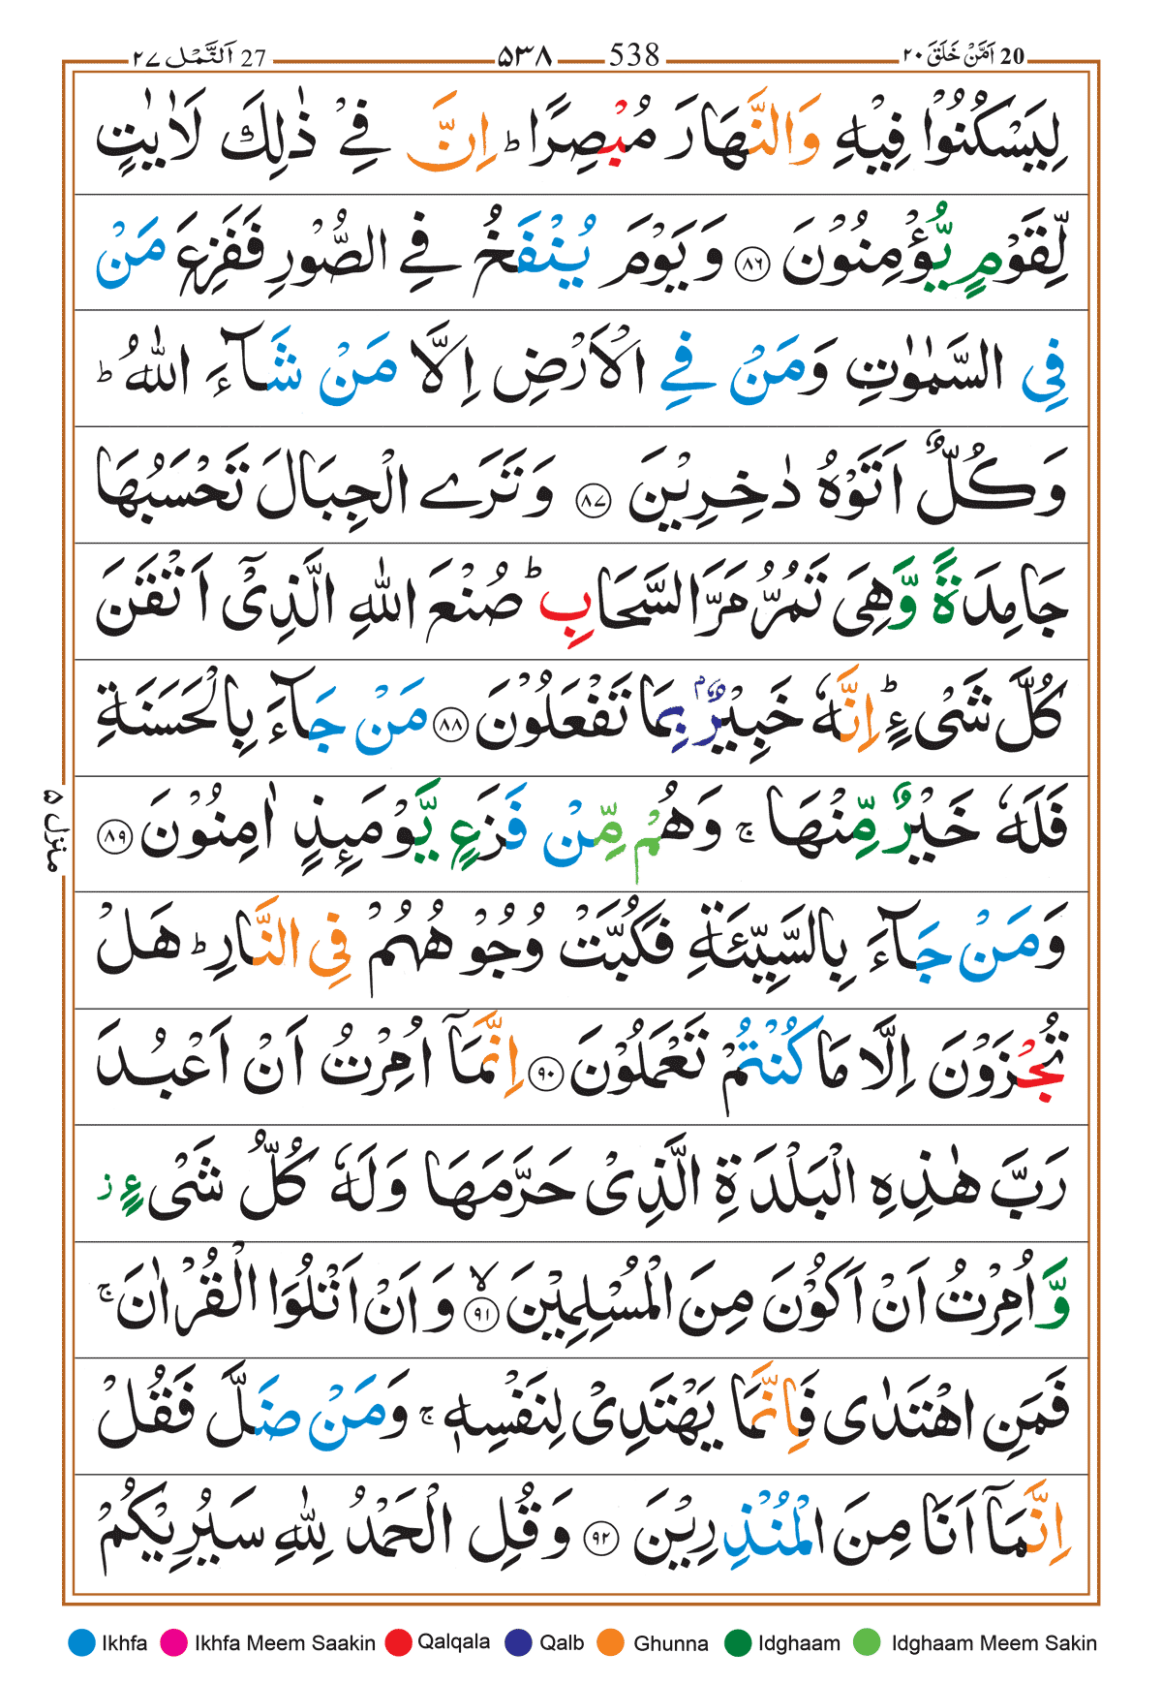 27 اَلنَّمْل ٢٧
۵۳۸ 538
20 اَمَّنْ خَلَقَ ٢٠
لِيَسْكُنُوْا فِيْهِ وَالنَّهَارَ مُبْصِرًا ؕ اِنَّ فِيْ ذٰلِكَ لَاٰيٰتٍ
لِّقَوْمٍ يُّؤْمِنُوْنَ ﴿٨٦﴾ وَيَوْمَ يُنْفَخُ فِي الصُّوْرِ فَفَزِعَ مَنْ
فِي السَّمٰوٰتِ وَمَنْ فِي الْاَرْضِ اِلَّا مَنْ شَآءَ اللّٰهُ ؕ
وَكُلٌّ اَتَوْهُ دٰخِرِيْنَ ﴿٨٧﴾ وَتَرَى الْجِبَالَ تَحْسَبُهَا
جَامِدَةً وَّهِيَ تَمُرُّ مَرَّ السَّحَابِ ؕ صُنْعَ اللّٰهِ الَّذِيْۤ اَتْقَنَ
كُلَّ شَيْءٍ ؕ اِنَّهٗ خَبِيْرٌۢ بِمَا تَفْعَلُوْنَ ﴿٨٨﴾ مَنْ جَآءَ بِالْحَسَنَةِ
فَلَهٗ خَيْرٌ مِّنْهَا ۚ وَهُمْ مِّنْ فَزَعٍ يَّوْمَىِٕذٍ اٰمِنُوْنَ ﴿٨٩﴾
وَمَنْ جَآءَ بِالسَّيِّئَةِ فَكُبَّتْ وُجُوْهُهُمْ فِي النَّارِ ؕ هَلْ
تُجْزَوْنَ اِلَّا مَا كُنْتُمْ تَعْمَلُوْنَ ﴿٩٠﴾ اِنَّمَاۤ اُمِرْتُ اَنْ اَعْبُدَ
رَبَّ هٰذِهِ الْبَلْدَةِ الَّذِيْ حَرَّمَهَا وَلَهٗ كُلُّ شَيْءٍ ز
وَّاُمِرْتُ اَنْ اَكُوْنَ مِنَ الْمُسْلِمِيْنَ ۙ﴿٩١﴾ وَاَنْ اَتْلُوَا الْقُرْاٰنَ ۚ
فَمَنِ اهْتَدٰى فَاِنَّمَا يَهْتَدِيْ لِنَفْسِهٖ ۚ وَمَنْ ضَلَّ فَقُلْ
اِنَّمَاۤ اَنَا مِنَ الْمُنْذِرِيْنَ ﴿٩٢﴾ وَقُلِ الْحَمْدُ لِلّٰهِ سَيُرِيْكُمْ
منزل ۵
Ikhfa Ikhfa Meem Saakin Qalqala Qalb Ghunna Idghaam Idghaam Meem Sakin